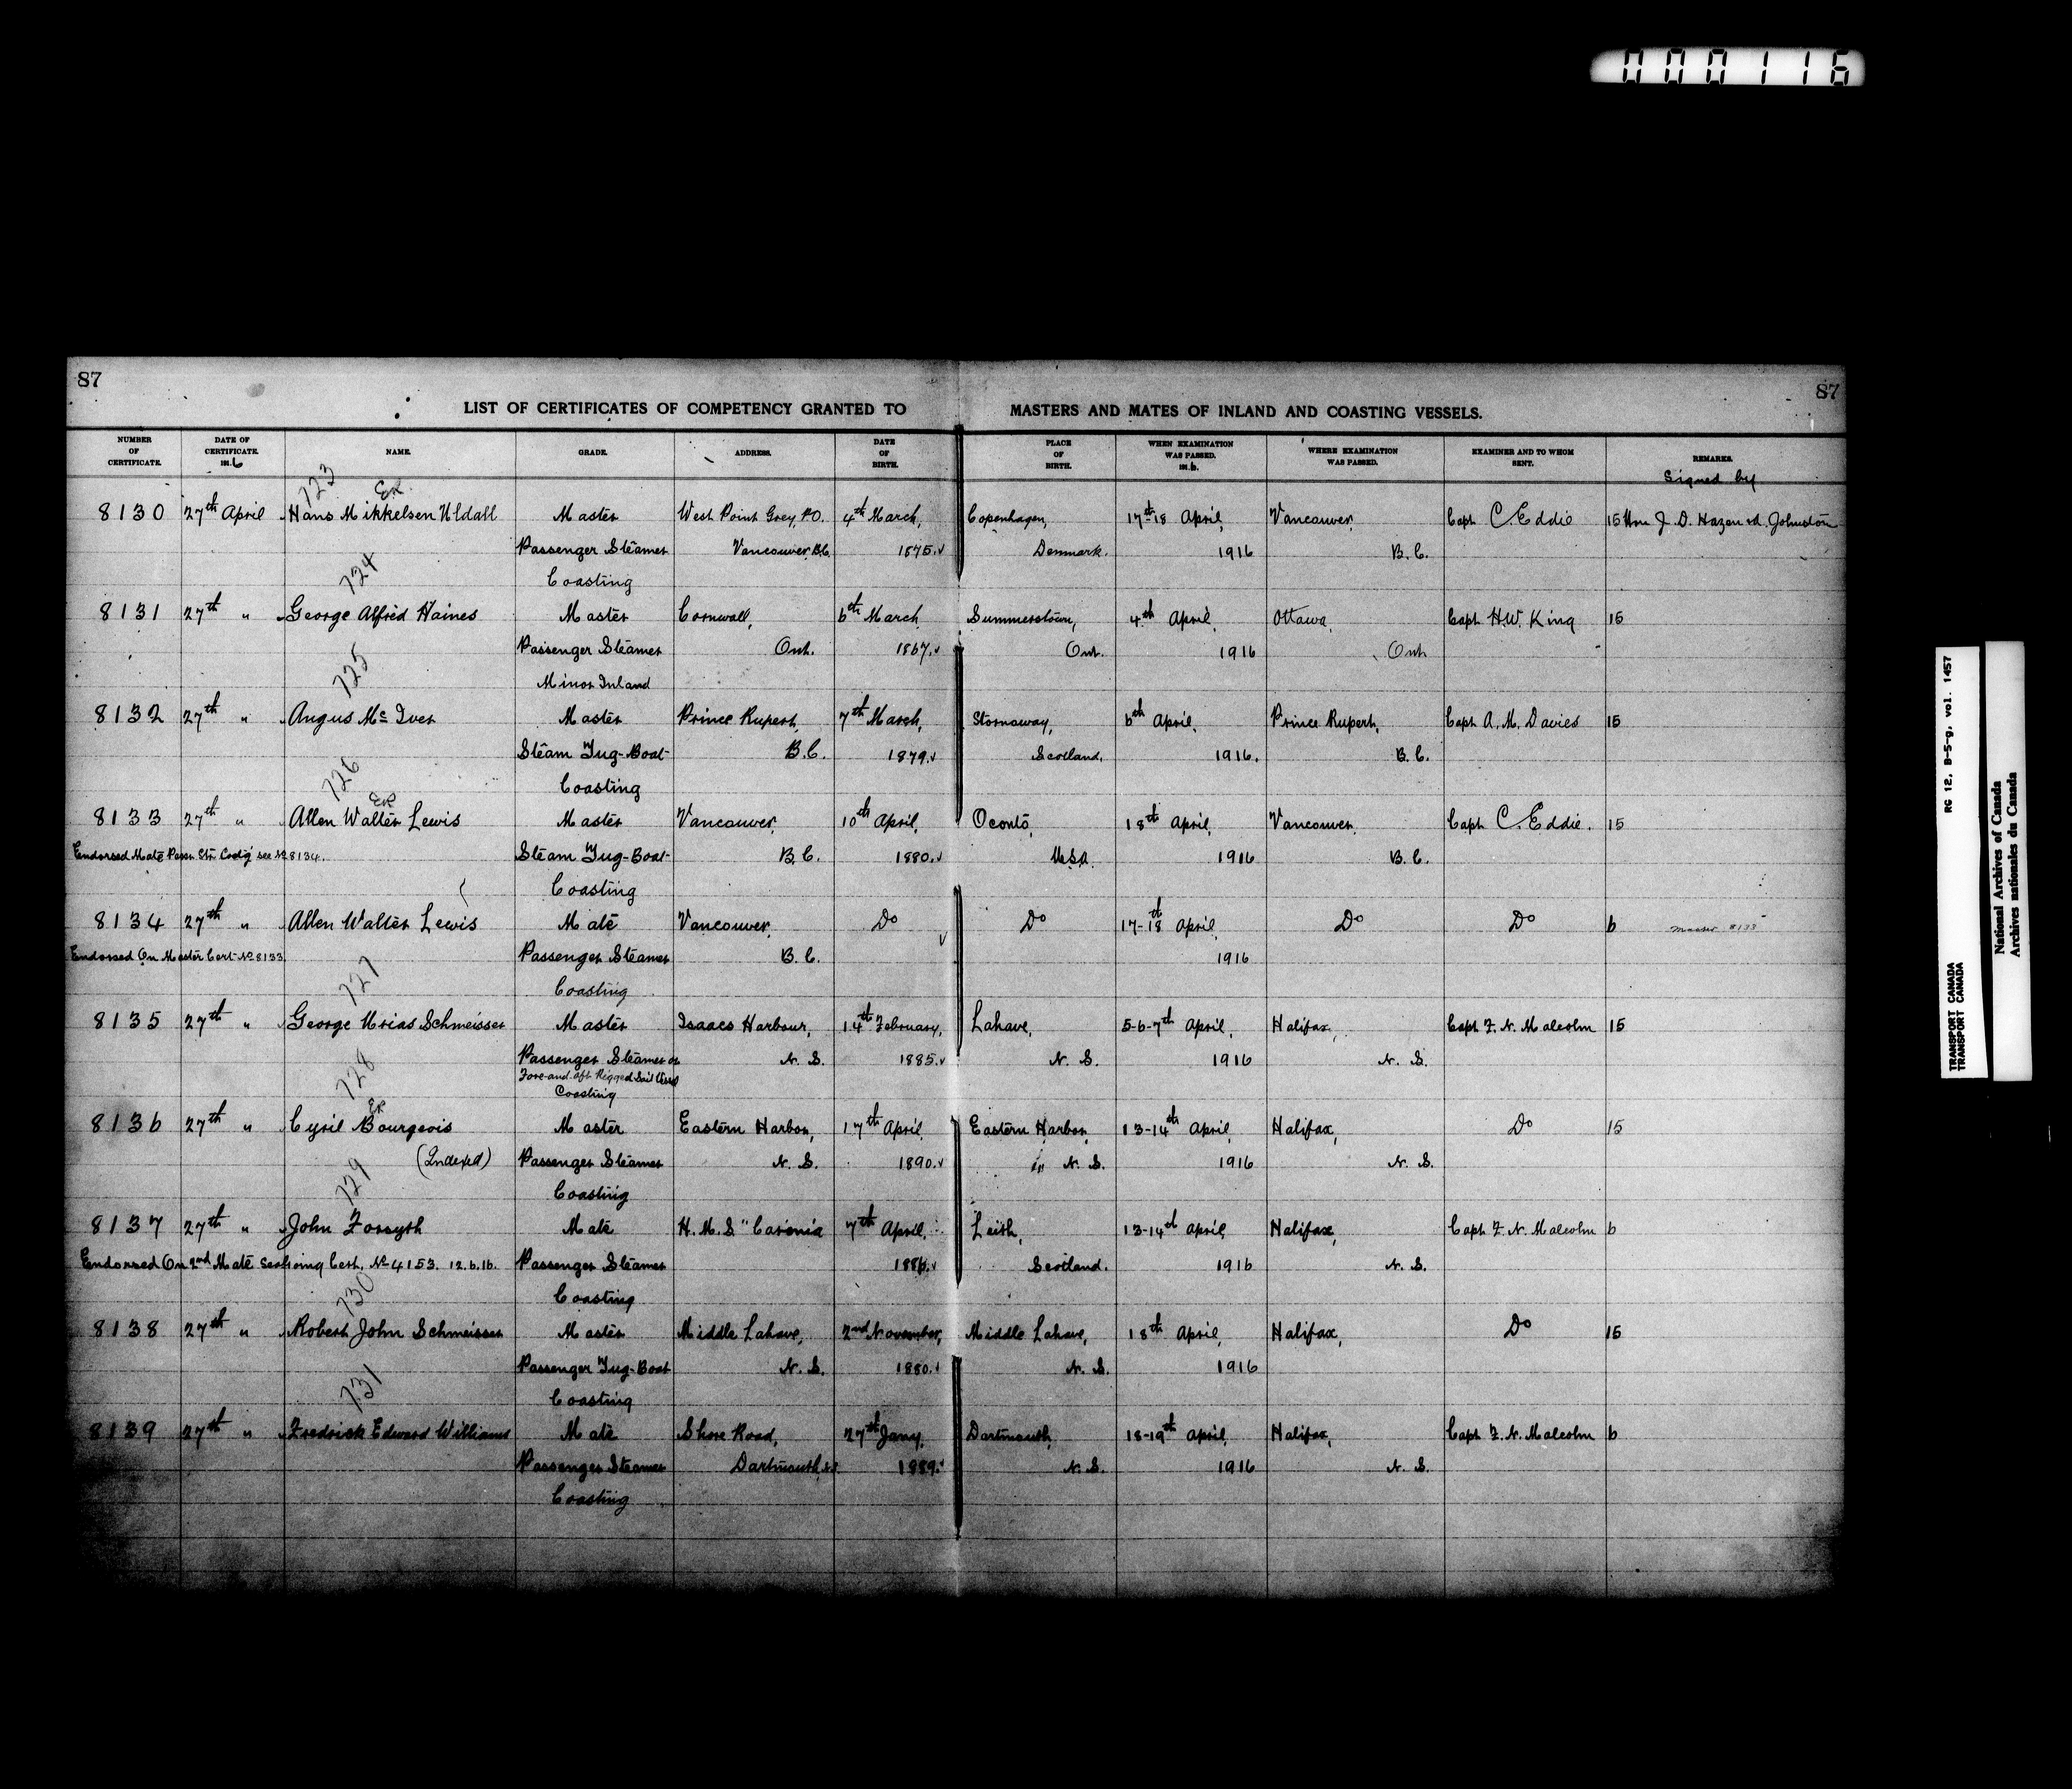 000116
87 87
LIST OF CERTIFICATES OF COMPETENCY GRANTED TO MASTERS AND MATES OF INLAND AND COASTING VESSELS.
NUMBER OF CERTIFICATE. DATE OF CERTIFICATE. 191.6 NAME. GRADE. ADDRESS. DATE OF BIRTH. PLACE OF BIRTH. WHEN EXAMINATION WAS PASSED. 191.6. WHERE EXAMINATION WAS PASSED. EXAMINER AND TO WHOM SENT. REMARKS.
Signed by
723 Ex.
8130 27th April Hans Mikkelsen Uldall Master West Point Grey P.O. 4th March, Copenhagen, 17th-18 April, Vancouver, Capt C. Eddie 15 Hon J. D. Hazen Johnston
Passenger Steamer Vancouver B.C. 1875. Denmark. 1916 B.C.
724 Coasting
8131 27th " George Alfred Haines Master Cornwall, 6th March Summerstown, 4th April, Ottawa, Capt H.W. King 15
Passenger Steamer Ont. 1867. Ont. 1916 Ont
725 Minor Inland
8132 27th " Angus Mc Iver Master Prince Rupert, 7th March, Stornaway, 6th April, Prince Rupert, Capt A. M. Davies 15
Steam Tug-Boat B.C. 1879. Scotland. 1916. B.C.
726 Coasting
Ex
8133 27th " Allen Walter Lewis Master Vancouver, 10th April, Oconto, 18th April, Vancouver, Capt C. Eddie. 15
Endorsed Mate Passr Str Costg see No 8134. Steam Tug-Boat B.C. 1880. U.S.A. 1916 B.C.
Coasting
8134 27th " Allen Walter Lewis Mate Vancouver, Do Do 17-18th April, Do Do 6 Master 8133
Endorsed On Master Cert No 8133 Passenger Steamer B.C. 1916
727 Coasting
8135 27th " George Urias Schmeisser Master Isaacs Harbour, 14th February, Lahave, 5-6-7th April, Halifax, Capt F. N. Malcolm 15
Passenger Steamer or N.S. 1885. N.S. 1916 N.S.
728 Fore-and-aft Rigged Sail Vessel
Coasting
Ex
8136 27th " Cyril Bourgeois Master Eastern Harbor, 17th April, Eastern Harbor, 13-14th April, Halifax, Do 15
(Indexed) Passenger Steamer N.S. 1890. N.S. 1916 N.S.
729 Coasting
8137 27th " John Forsyth Mate H.M.S. "Caronia 7th April, Leith, 13-14th April, Halifax, Capt F. N. Malcolm 6
Endorsed On 2nd Mate Seagoing Cert. No 4153. 12.6.16. Passenger Steamer 1886. Scotland. 1916 N.S.
730 Coasting
8138 27th " Robert John Schmeisser Master Middle Lahave, 2nd November, Middle Lahave, 18th April, Halifax, Do 15
Passenger Tug-Boat N.S. 1880. N.S. 1916
731 Coasting
8139 27th " Fredrick Edward Williams Mate Shore Road, 27th Jany, Dartmouth, 18-19th April, Halifax, Capt F. N. Malcolm 6
Passenger Steamer Dartmouth, N.S. 1889. N.S. 1916 N.S.
Coasting
TRANSPORT CANADA RG 12, B-5-g, vol. 1457
TRANSPORT CANADA
National Archives of Canada
Archives nationales du Canada